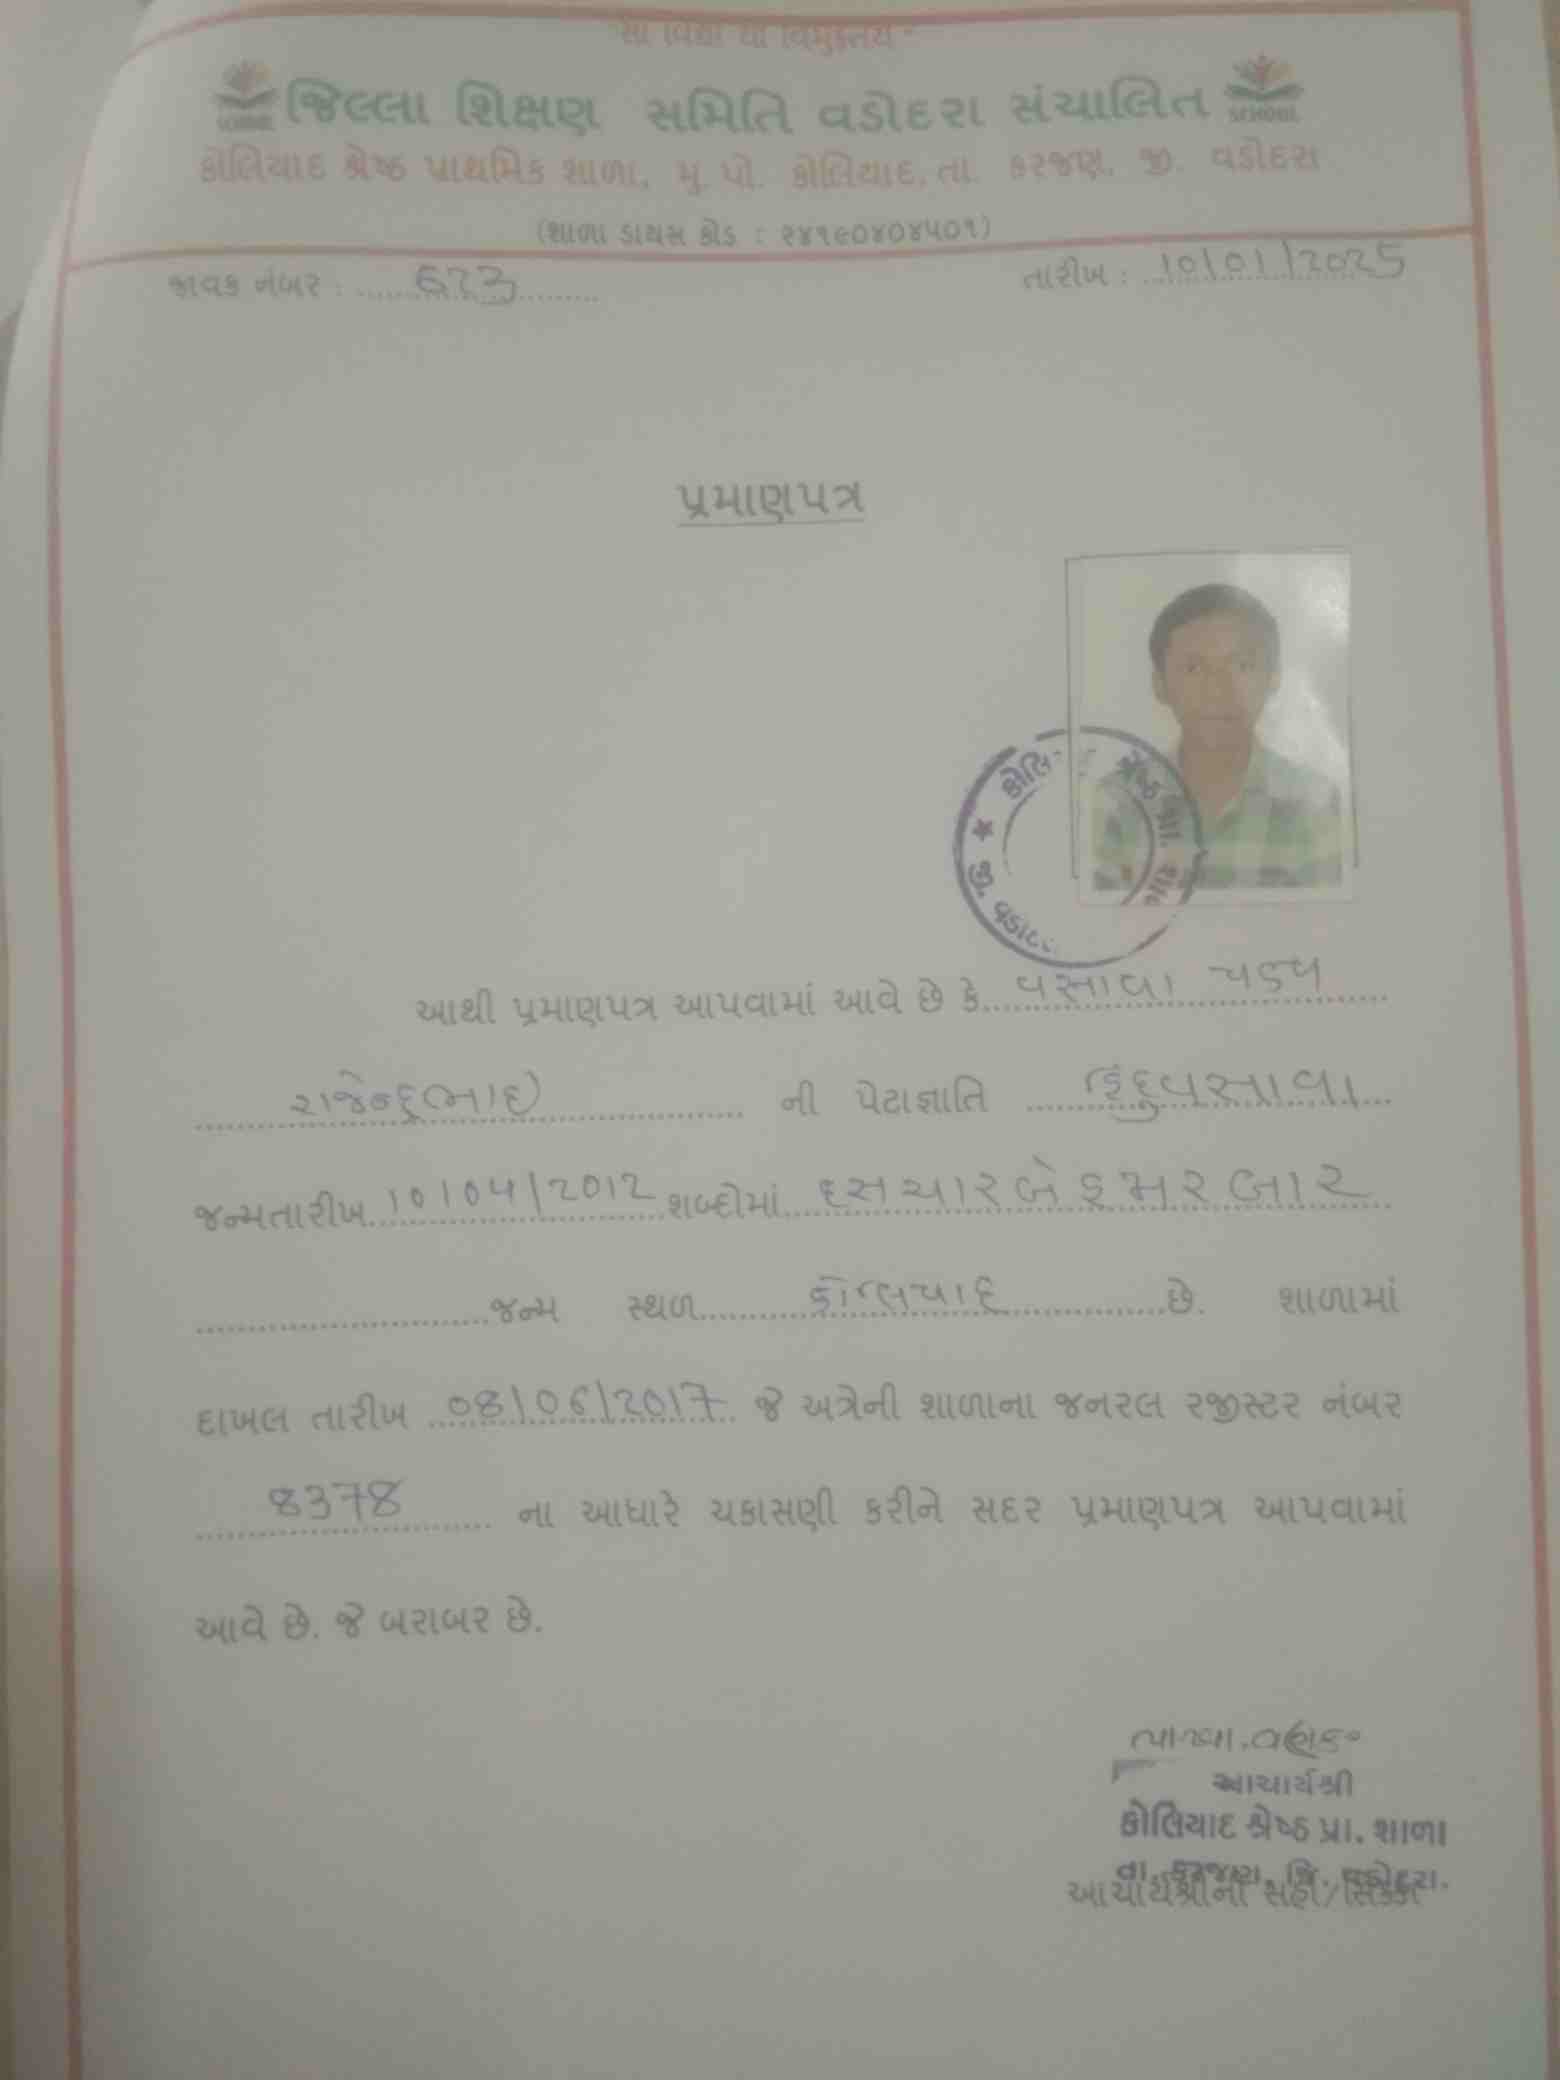 "સા વિદ્યા યા વિમુક્તયે"
જિલ્લા શિક્ષણ સમિતિ વડોદરા સંચાલિત
SCHOOL
કોલિયાદ શ્રેષ્ઠ પ્રાથમિક શાળા, મુ. પો. કોલિયાદ, તા. કરજણ, જી. વડોદરા
(શાળા ડાયસ કોડ : ૨૪૧૯૦૪૦૪૫૦૧)
જાવક નંબર : 673 તારીખ : 10/01/2025
પ્રમાણપત્ર
આથી પ્રમાણપત્ર આપવામાં આવે છે કે વસાવા
રાજેન્દ્રભાઇ ની પેટાજ્ઞાતિ હિંદુ વસાવા
જન્મતારીખ 10/04/2012 શબ્દોમાં દસ ચાર બે હજાર બાર
જન્મ સ્થળ કોલિયાદ છે. શાળામાં
દાખલ તારીખ 08/06/2017 જે અત્રેની શાળાના જનરલ રજીસ્ટર નંબર
8378 ના આધારે ચકાસણી કરીને સદર પ્રમાણપત્ર આપવામાં
આવે છે. જે બરાબર છે.
આચાર્યશ્રી
કોલિયાદ શ્રેષ્ઠ પ્રા. શાળા
તા. કરજણ, જિ. વડોદરા.
આચાર્યશ્રીની સહી/સિક્કો